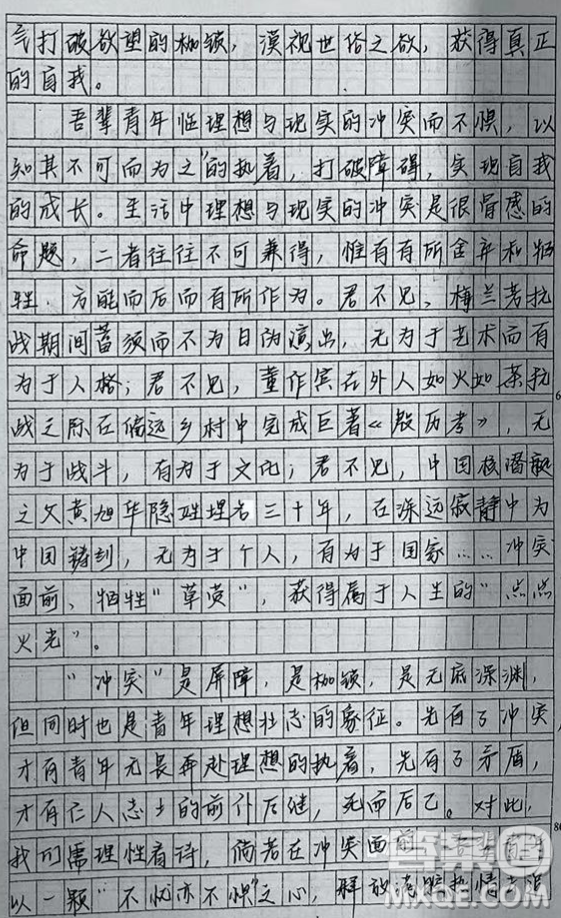 气打破欲望的枷锁，漠视世俗之欲，获得真正
的自我。
吾辈青年临理想与现实的冲突而不惧，以
知其不可而为之"的执着，打破障碍，实现自我
的成长。生活中理想与现实的冲突是很骨感的
命题，二者往往不可兼得，惟有有所舍弃和牺
牲，方能而后而有所作为。君不见，梅兰芳抗
战期间蓄须而不为日伪演出，无为于艺术而有
为于人格；君不见，董作宾在外人如火如荼抗
战之际在偏远乡村中完成巨著《殷历考》，无
为于战斗，有为于文化；君不见，中国核潜艇
之父黄旭华隐姓埋名三十年，在深远寂静中为
中国铸剑，无为于个人，有为于国家……冲突
面前，牺牲"草萤"，获得属于人生的"点点
火光"。
"冲突"是屏障，是枷锁，是无底深渊，
但同时也是青年理想壮志的象征。先有了冲突，
才有青年无畏奔赴理想的执着，先有了矛盾，
才有仁人志士的前仆后继，死而后已。对此，
我们需理性看待，倘若在冲突面前
以一颗"不忧亦不惧"之心，释放满腔热情去追
答案圈
MXQE.COM